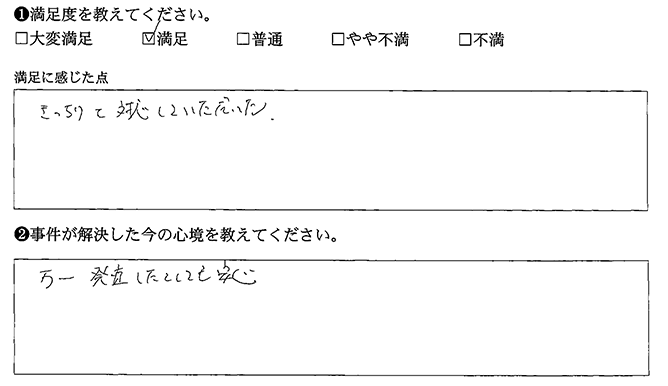 ❶満足度を教えてください。
□大変満足 ☑満足 □普通 □やや不満 □不満
満足に感じた点
きっちりと対応していただいた.
❷事件が解決した今の心境を教えてください。
万一 発症したとしても安心